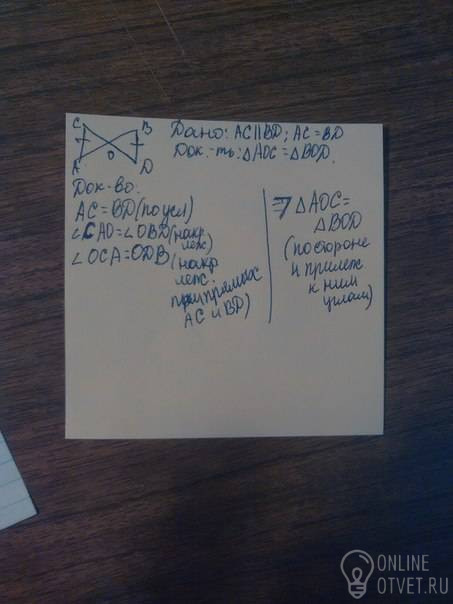 C B
A O D
Дано: AC||BD; AC=BD
Док-ть: △AOC=△BOD.
Док-во.
AC=BD(по усл)
∠CAO=∠OBD(накр
леж)
∠OCA=ODB(накр
леж.
при прямых
AC и BD)
⇒ △AOC=
△BOD
(по стороне
и прилеж
к ним
углам)
ONLINE
OTVET.RU